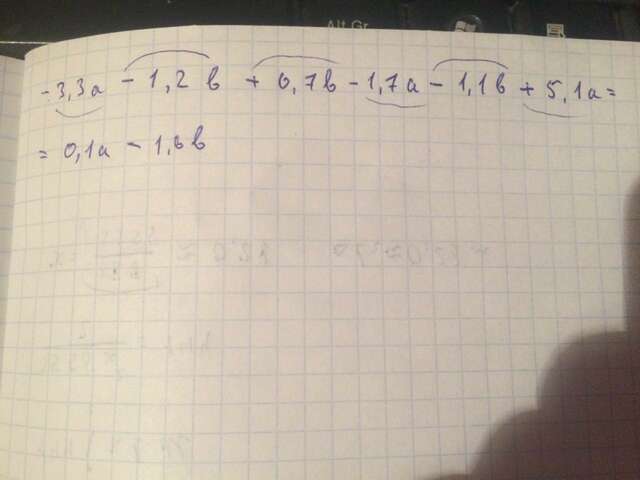 Alt Gr
- 3,3a - 1,2b + 0,7b - 1,7a - 1,1b + 5,1a =
= 0,1a - 1,6b